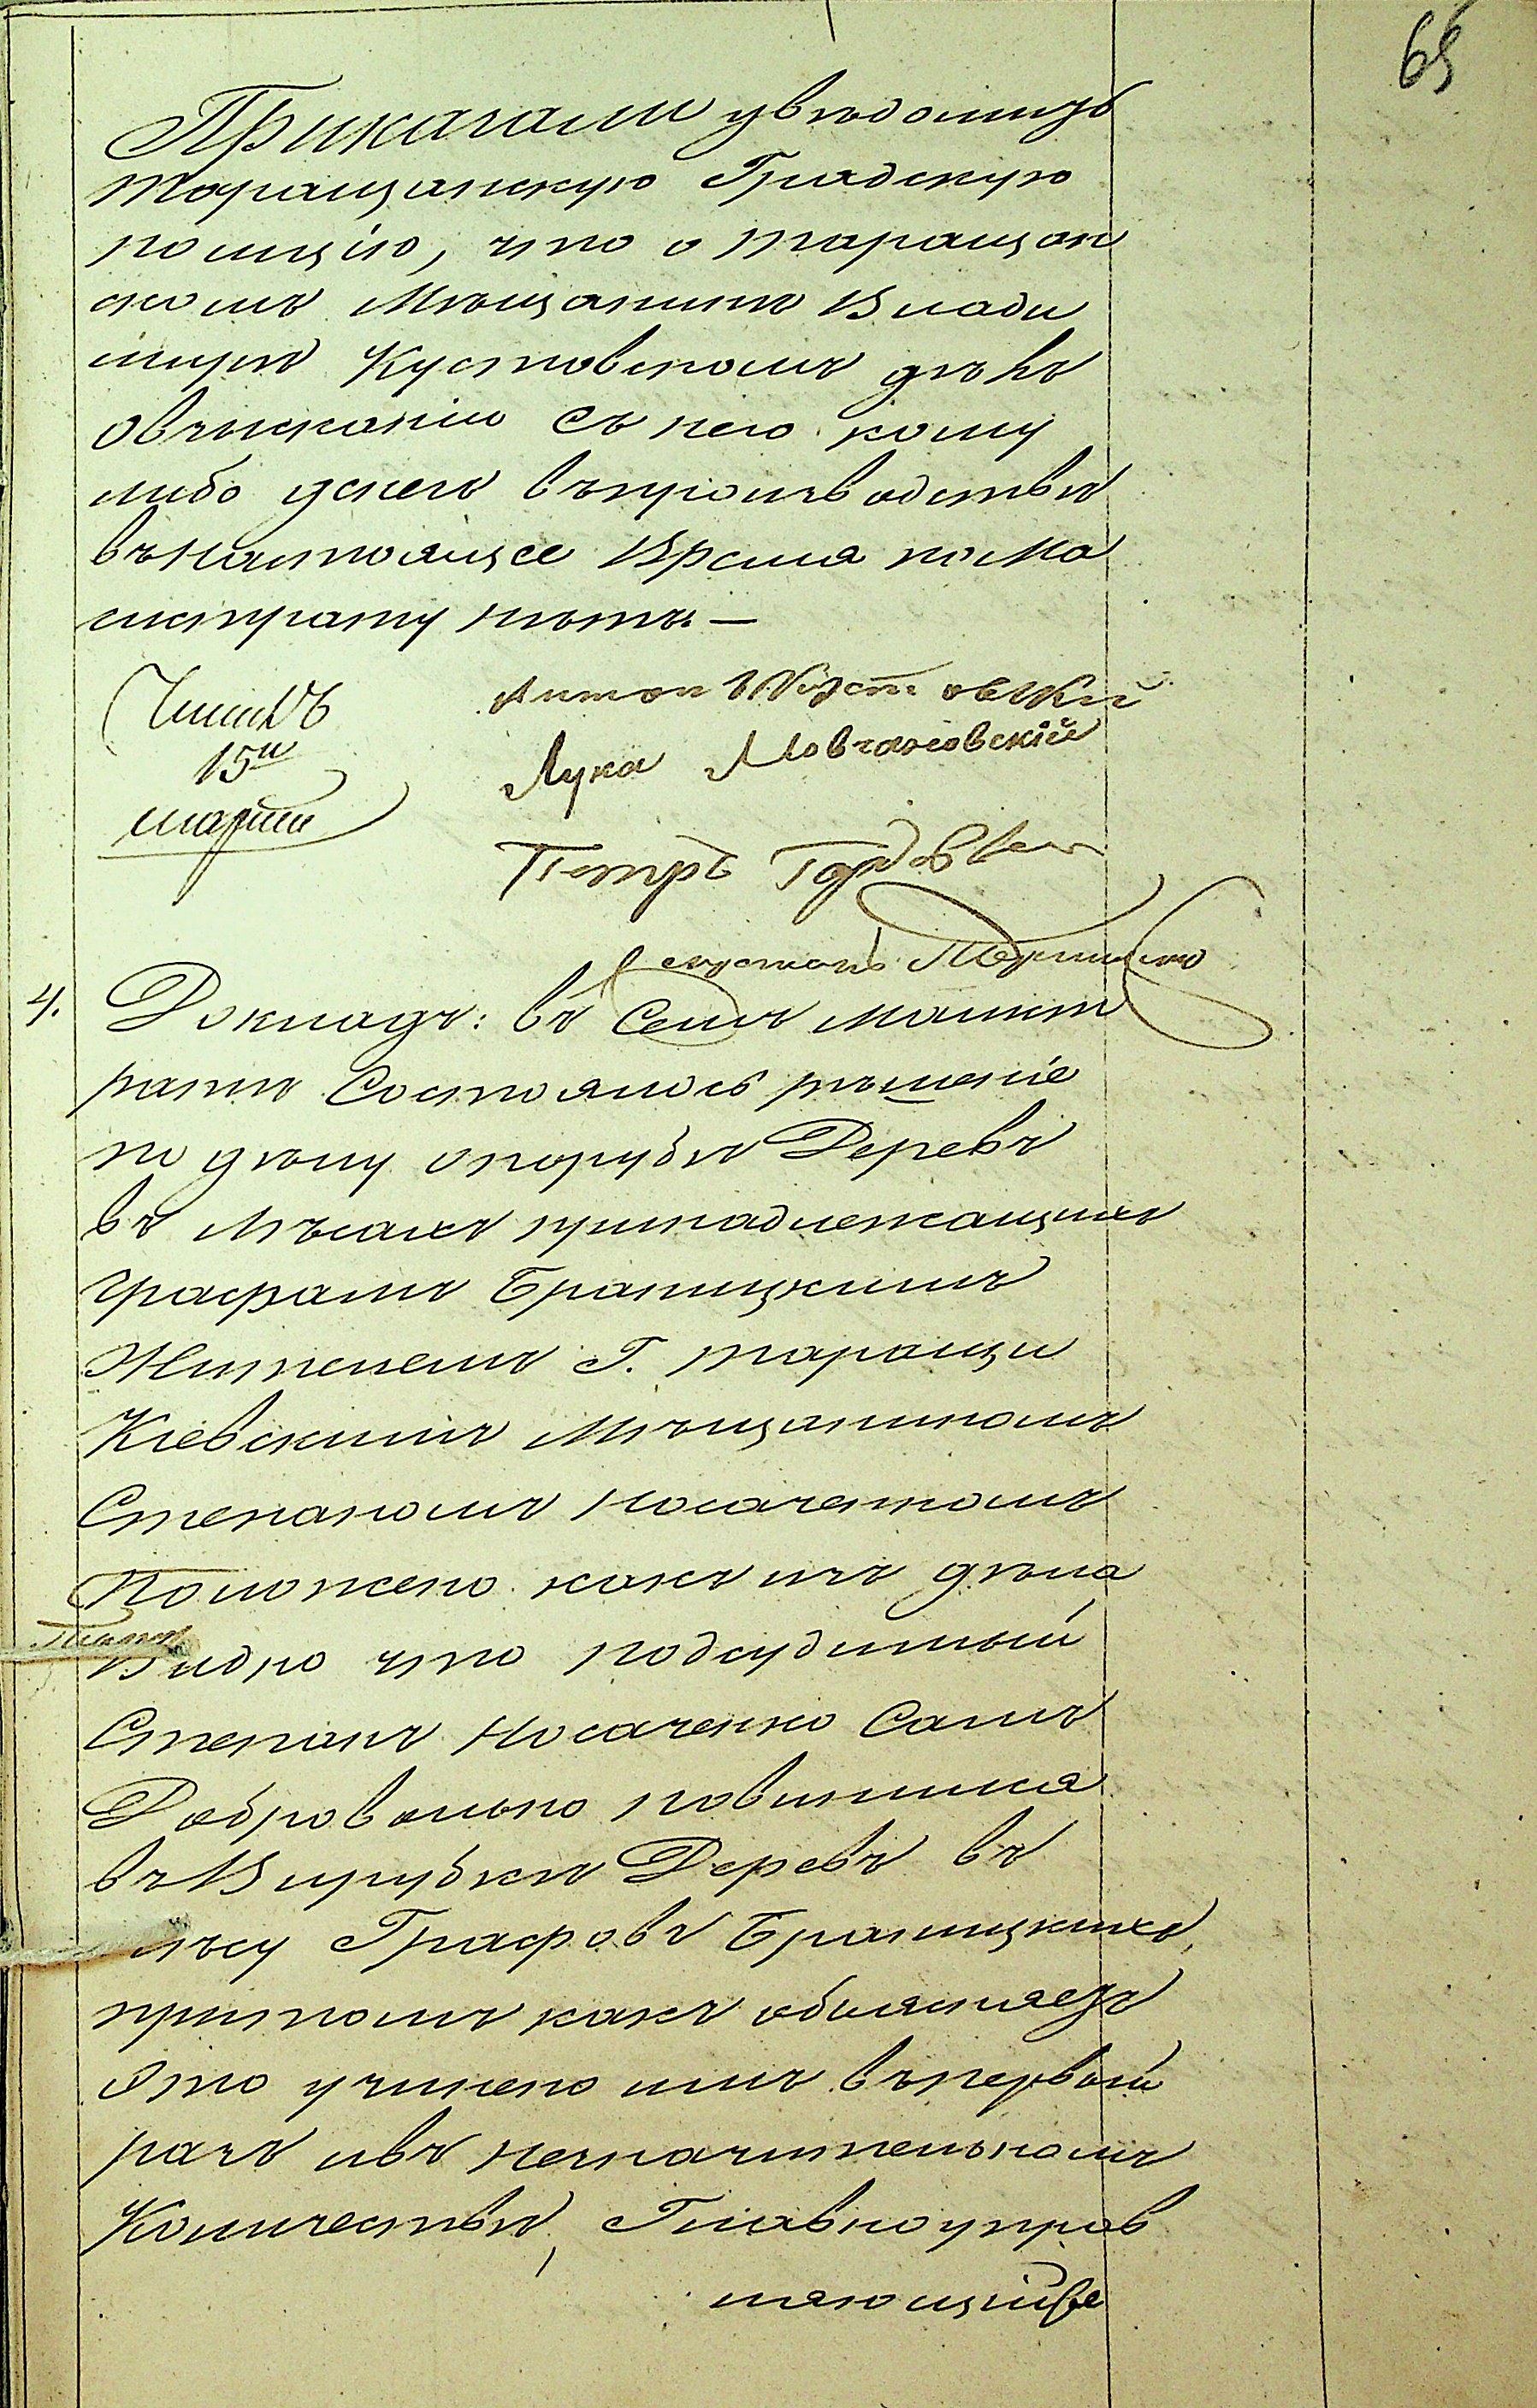 65
Приказали увѣдомить
таращанскую Градскую
полицію, что о таращан
скомъ Мѣщанинѣ Влади
мирѣ Кустовскомъ дѣлъ
овзысканіи съ него кому
либо денегъ въпроизводствѣ
въНастоящее Время поМа
гистрату нѣтъ. —
15го
марта
Антонъ Кустовскій
Лука Мовчановскій
Петръ
4. Докладъ: въ Семъ магист
ратѣ Состоялось рѣшеніе
по дѣлу опорубкѣ Деревъ
въ лѣсахъ принадлежащихъ
графамъ Браницкимъ
Жителемъ Г. таращи
Кіевскимъ Мѣщаниномъ
Степаномъ Носаченкомъ
Положено какъ изъ дѣла
Видно что подсудимый
Степанъ Носаченко Самъ
Добровольно повинился
въВырубки Деревъ въ
лѣсу Графовъ Браницкихъ,
притомъ какъ объясняетъ
Это учинено имъ въпервый
разъ ивъ незначительномъ
Количествѣ, Главноуправ
ляющій